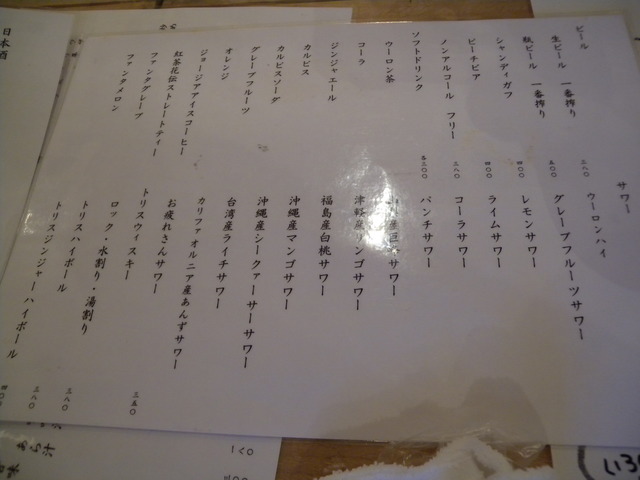 ビール
生ビール 一番搾り 三八〇
瓶ビール 一番搾り 五〇〇
シャンディガフ 四〇〇
ピーチビア 四〇〇
ノンアルコール フリー 三八〇
ソフトドリンク 各二〇〇
ウーロン茶
コーラ
ジンジャエール
カルピス
カルピスソーダ
グレープフルーツ
オレンジ
ジョージアアイスコーヒー
紅茶花伝ストレートティー
ファンタグレープ
ファンタメロン
サワー
ウーロンハイ
グレープフルーツサワー
レモンサワー
ライムサワー
コーラサワー
パンチサワー
巨峰サワー
津軽産リンゴサワー
福島産白桃サワー
沖縄産マンゴサワー
沖縄産シークァーサーサワー
台湾産ライチサワー
カリファオルニア産あんずサワー
お疲れさんサワー
トリスウィスキー
ロック・水割り・湯割り 三五〇
トリスハイボール 三八〇
トリスジンジャーハイボール 三八〇
日本酒
あら汁